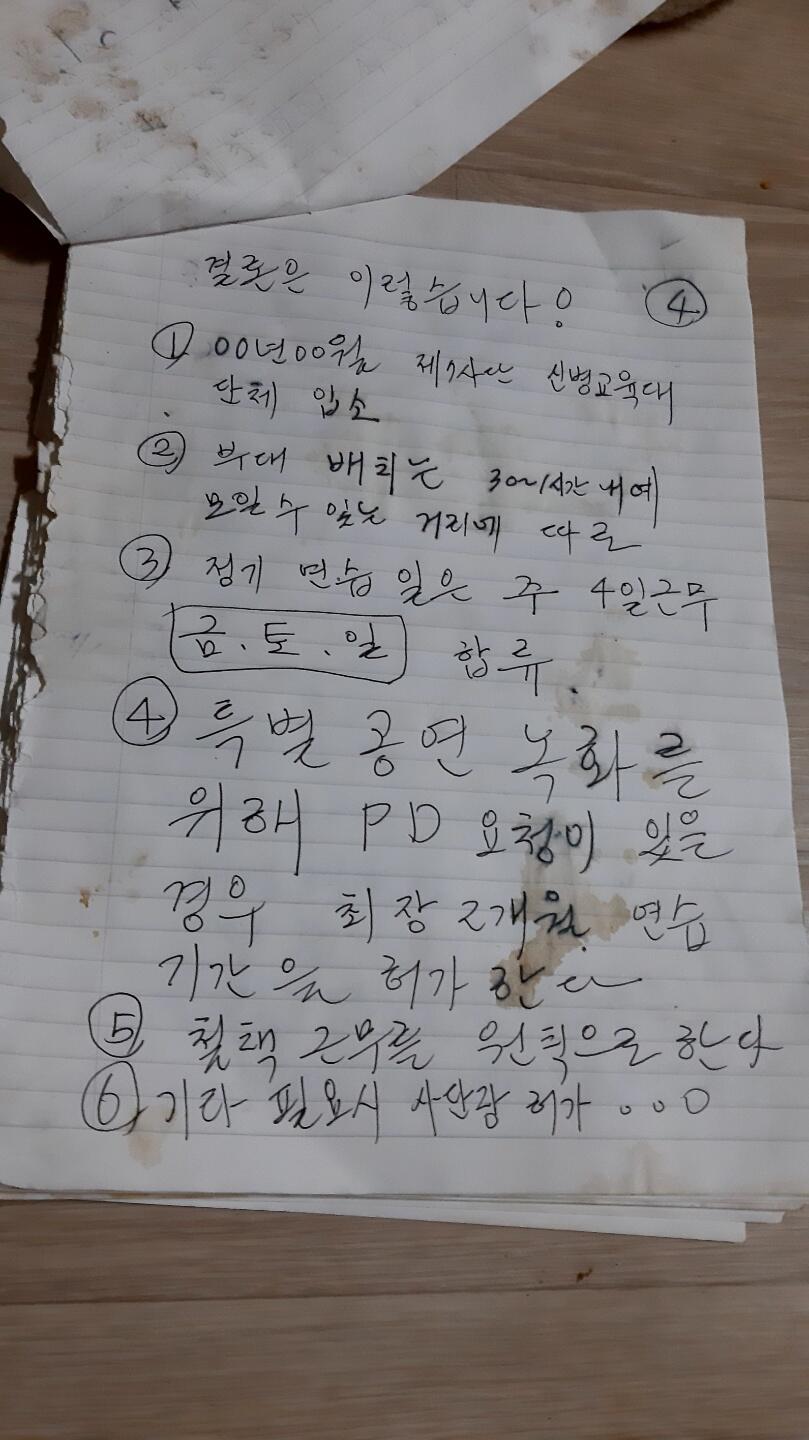 결론은 이렇습니다! ④
① 00년00월 제7사단 신병교육대
단체 입소
② 부대 배치는 30~1시간 내에
모일 수 있는 거리에 따로
③ 정기 연습 일은 주 4일근무
금.토.일 합류.
④ 특별 공연 녹화를
위해 PD 요청이 있을
경우 최장 2개월 연습
기간을 허가 한다
⑤ 철책 근무를 원칙으로 한다
⑥ 기타 필요시 사단장 허가 ...o